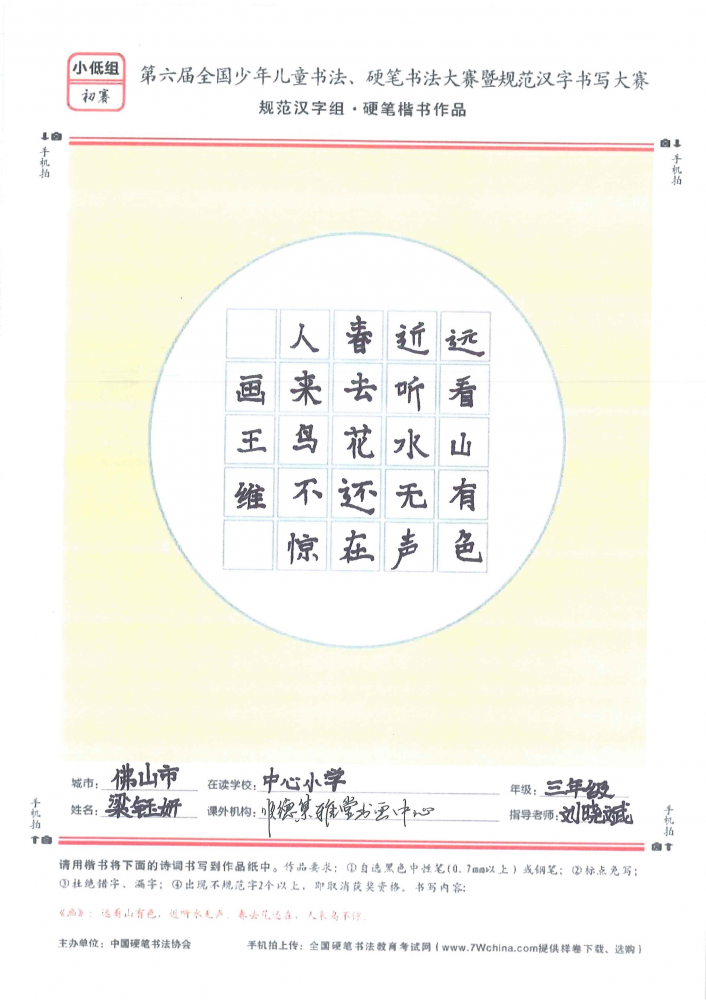 小低组
初赛
第六届全国少年儿童书法、硬笔书法大赛暨规范汉字书写大赛
规范汉字组·硬笔楷书作品
手机拍
手机拍
远看山有色
近听水无声
春去花还在
人来鸟不惊
画王维
城市：佛山市 在读学校：中心小学 年级：三年级
姓名：梁钰妍 课外机构：顺德集雅堂书画中心 指导老师：刘晓斌
手机拍
手机拍
请用楷书将下面的诗词书写到作品纸中。作品要求：①自选黑色中性笔(0.7mm以上)或钢笔；②标点免写；
③杜绝错字、漏字；④出现不规范字2个以上，即取消获奖资格。书写内容：
《画》：远看山有色，近听水无声。春去花还在，人来鸟不惊。
主办单位：中国硬笔书法协会 手机拍上传：全国硬笔书法教育考试网（www.7Wchina.com提供样卷下载、选购）